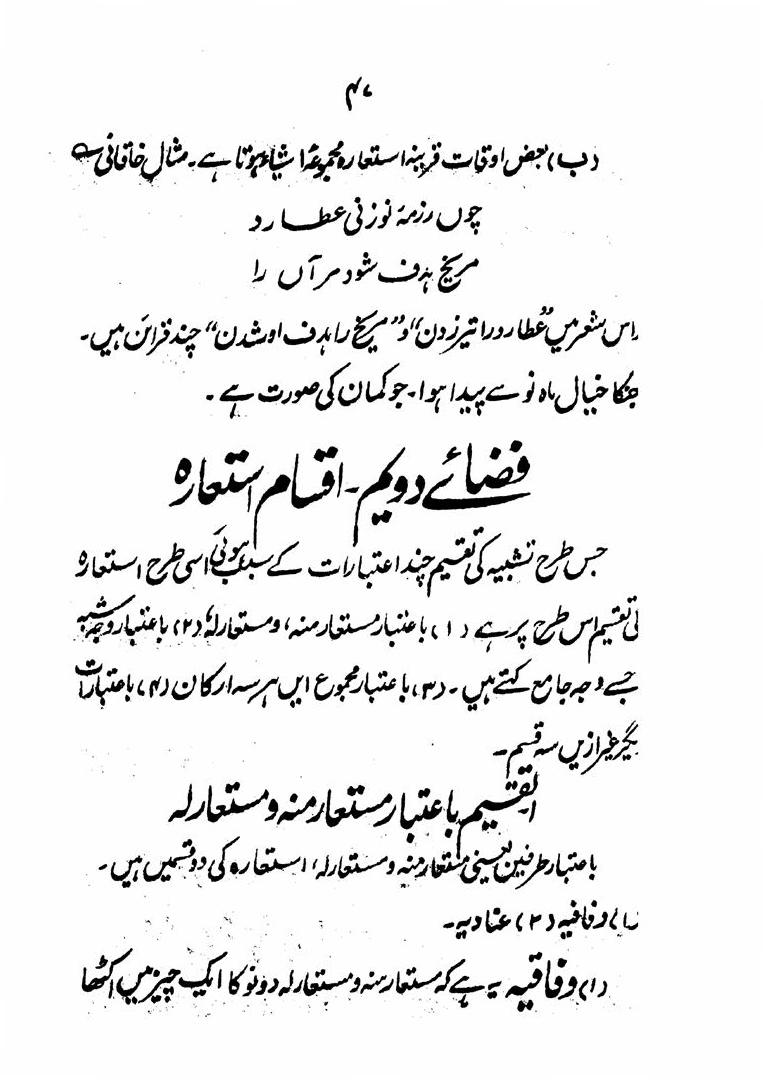 ۴۷
(ب) بعض اوقات قرینہ استعارہ مجموعۂ اشیاء ہوتا ہے۔ مثال خاقانی ؎
چوں رزمۂ نوزنی عطارد
مریخ ہدف شود مر آں را
اس شعر میں "عطارد را تیر زدن" و "مریخ را ہدف او شدن" چند قرائن ہیں۔
جنکا خیال ماہ نو سے پیدا ہوا۔ جو کمان کی صورت ہے۔
فضائے دویم۔ اقسام استعارہ
جس طرح تشبیہ کی تقسیم چند اعتبارات کے سبب ہوئی اسی طرح استعارہ
کی تقسیم اس طرح پر ہے (۱) باعتبار مستعار منہ، و مستعار لہٗ (۲) باعتبار وجہ شبہ
جسے وجہ جامع کہتے ہیں۔ (۳) باعتبار مجموع ایں ہر سہ ارکان (۴) باعتبارات
دیگر غیر ازیں سہ قسم۔
۱۔ تقسیم باعتبار مستعار منہ و مستعار لہ
باعتبار طرفین یعنی مستعار منہ و مستعار لہ، استعارہ کی دو قسمیں ہیں۔
(۱) وفاقیہ (۲) عنادیہ۔
(۱) وفاقیہ یہ ہے کہ مستعار منہ و مستعار لہ دونو کا ایک چیز میں اکٹھا